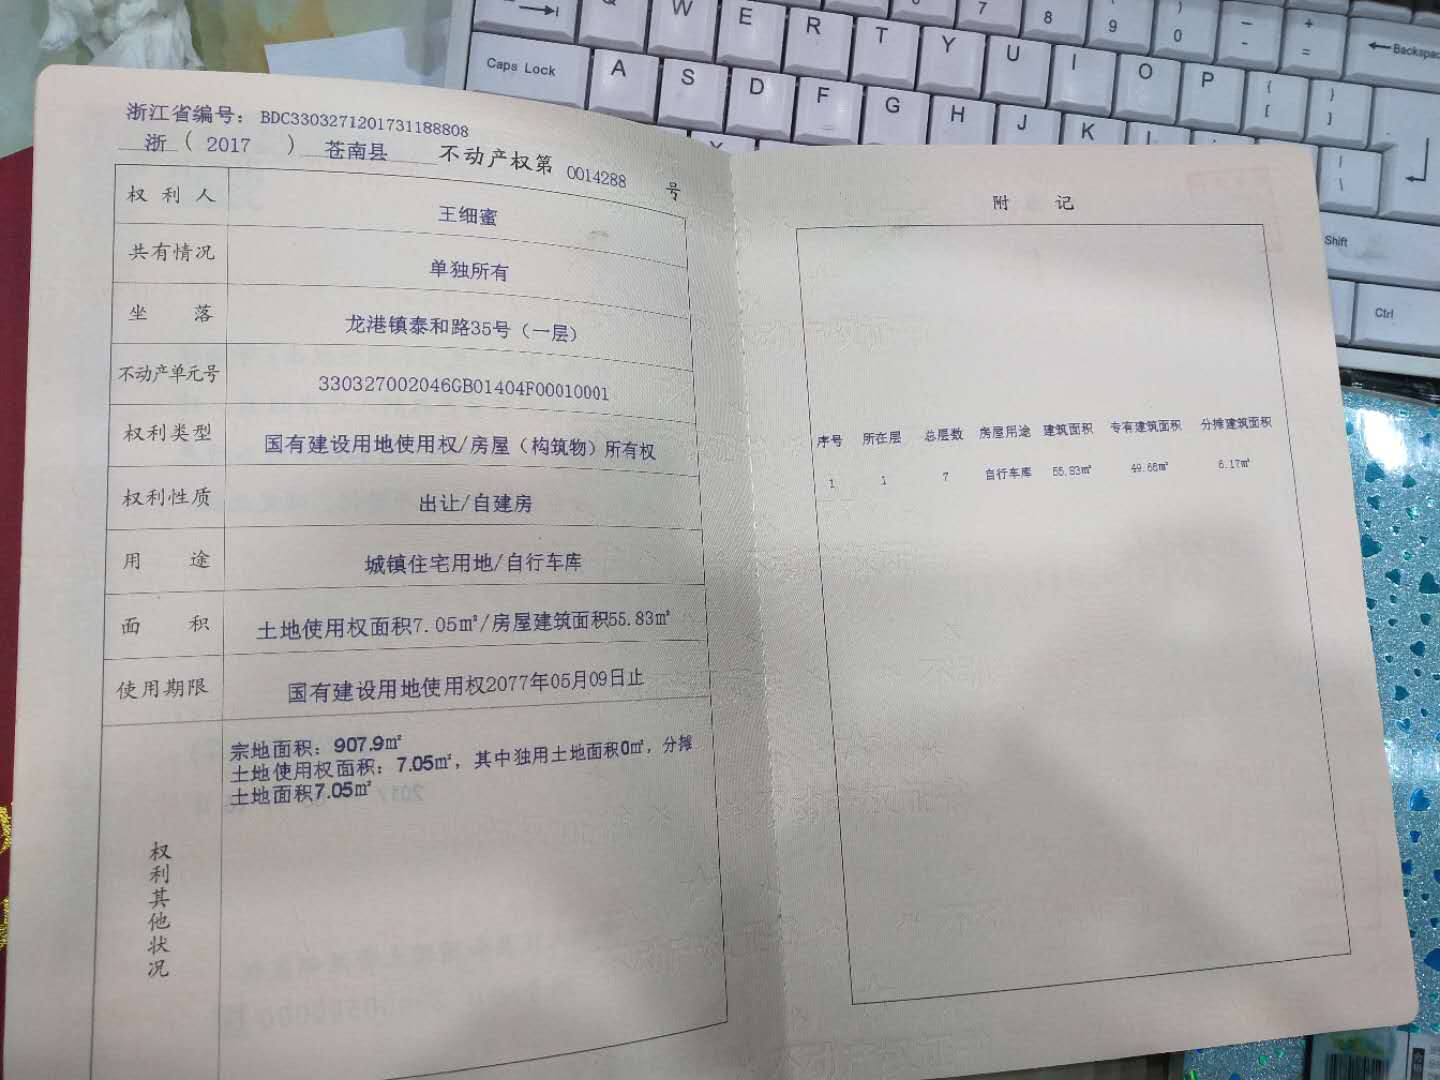 浙江省编号：BDC3303271201731188808
浙（2017）苍南县 不动产权第0014288号
权利人 王细蜜
共有情况 单独所有
坐落 龙港镇泰和路35号（一层）
不动产单元号 330327002046GB01404F00010001
权利类型 国有建设用地使用权/房屋（构筑物）所有权
权利性质 出让/自建房
用途 城镇住宅用地/自行车库
面积 土地使用权面积7.05㎡/房屋建筑面积55.83㎡
使用期限 国有建设用地使用权2077年05月09日止
权利其他状况
宗地面积：907.9㎡
土地使用权面积：7.05㎡，其中独用土地面积0㎡，分摊
土地面积7.05㎡
附记
序号 所在层 总层数 房屋用途 建筑面积 专有建筑面积 分摊建筑面积
1 1 7 自行车库 55.83㎡ 49.66㎡ 6.17㎡
Q W E R T Y U I O P { [ } ]
7 8 9 0 - + = Backspac
Caps Lock A S D F G H J K L
Shift
Ctrl